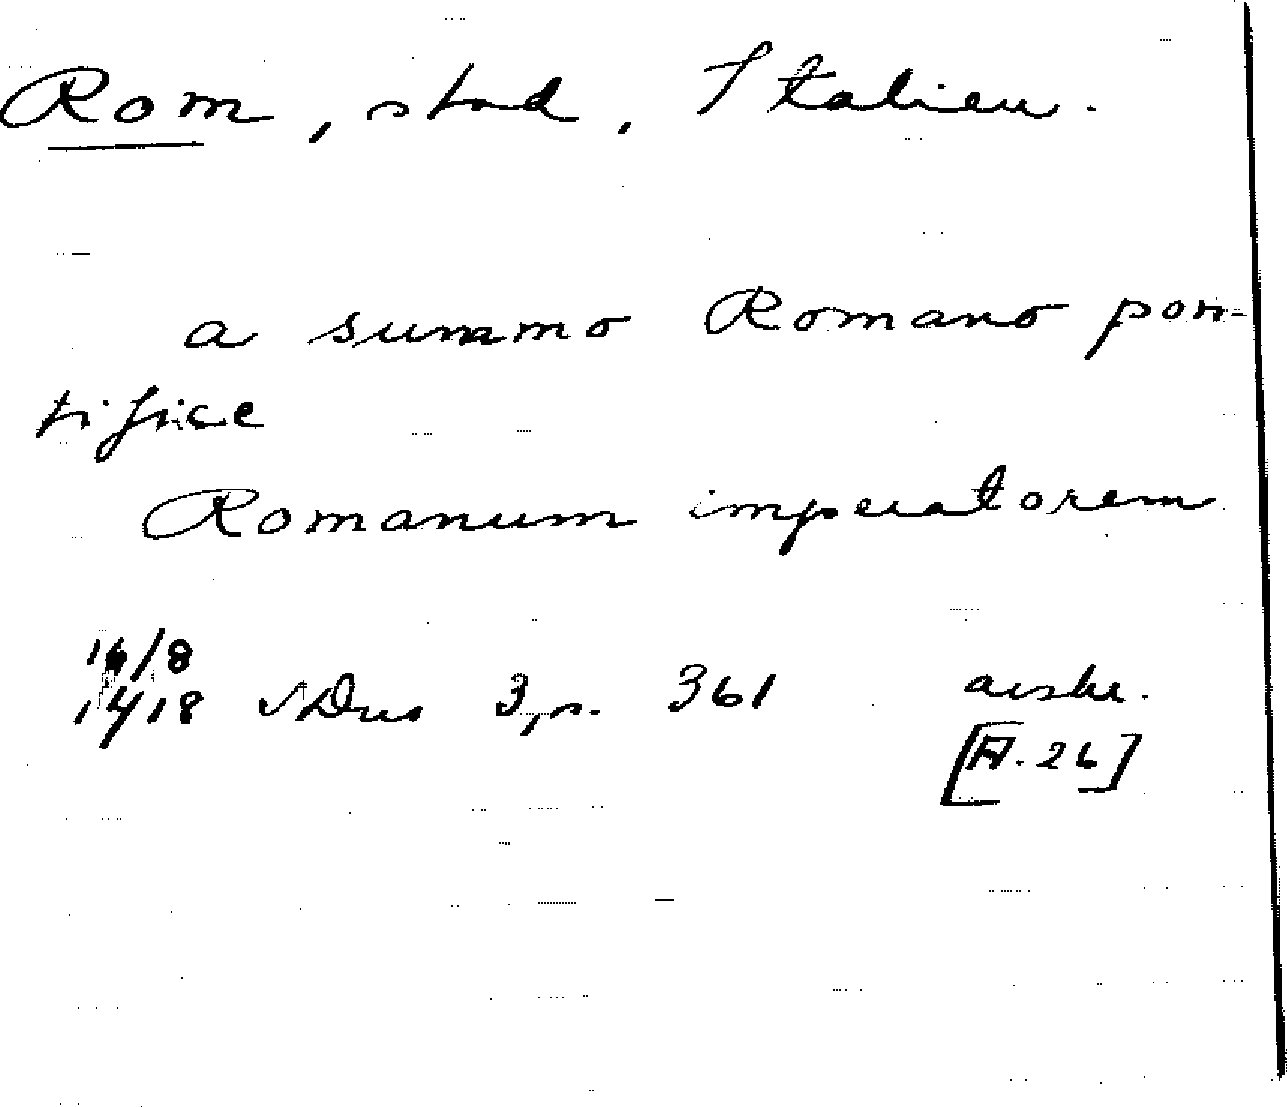 Rom, stad, Italien.
a summo Romano pon-
tifice
Romanum imperatorem
16/8
1418 SDns 3, s. 361 avskr.
[A. 26]